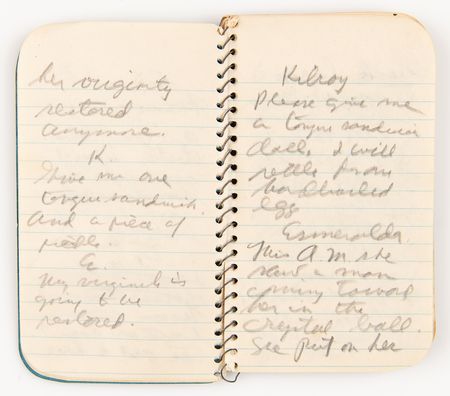 her virginity
restored
anymore.
K
Give me one
tongue sandwich.
And a piece of
pickle.
E.
My virginity is
going to be
restored.
Kilroy
Please give me
a tongue sandwich
I will
settle for
hardboiled
egg
Esmeralda.
This A M she
saw a man
coming toward
her in the
crystal ball.
She put on her